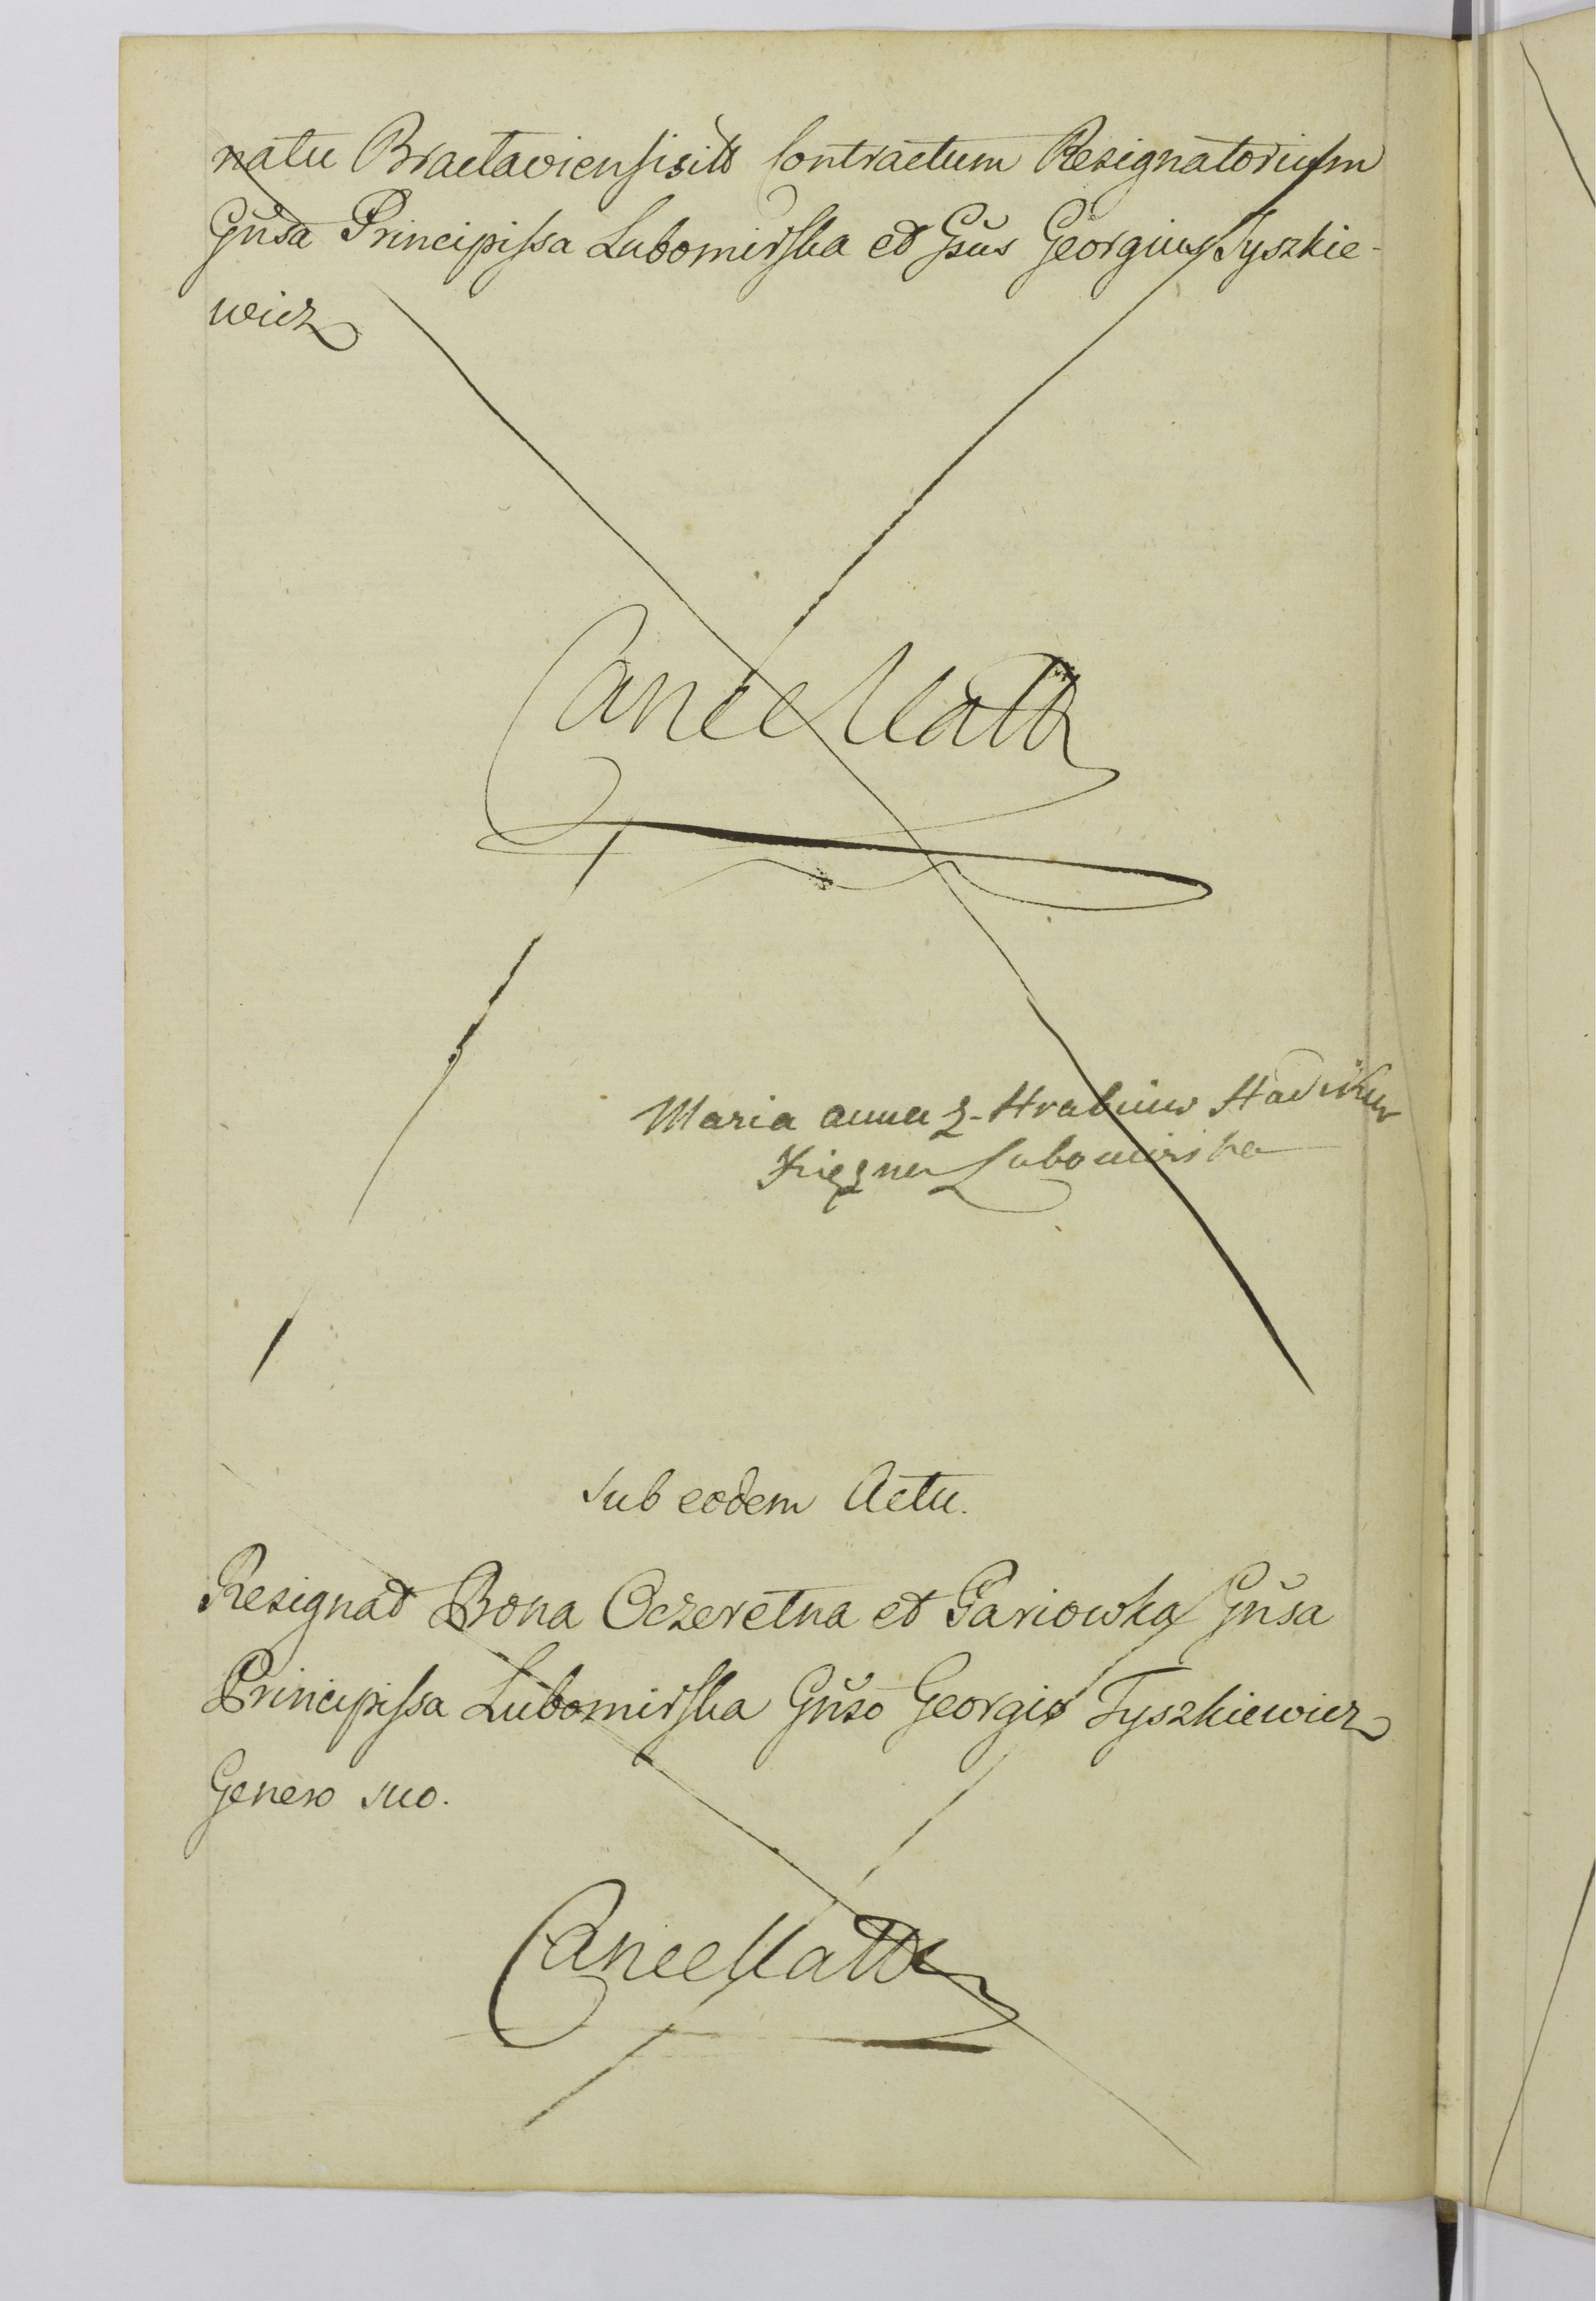 natu Bractaviensi sitt Contractum Resignatorium
Gnsa Principissa Lubomirska et Gsus Georgius Tyszkie-
wicz
Cancellatt
Maria Anna z Hrabiuw Hadikuw
Xięzna Lubomirska
Sub eodem Actu.
Resignat Bona Oczeretna et Pariowka Gnsa
Principissa Lubomirska Gnso Georgio Tyszkiewicz
Genero suo.
Cancellatt